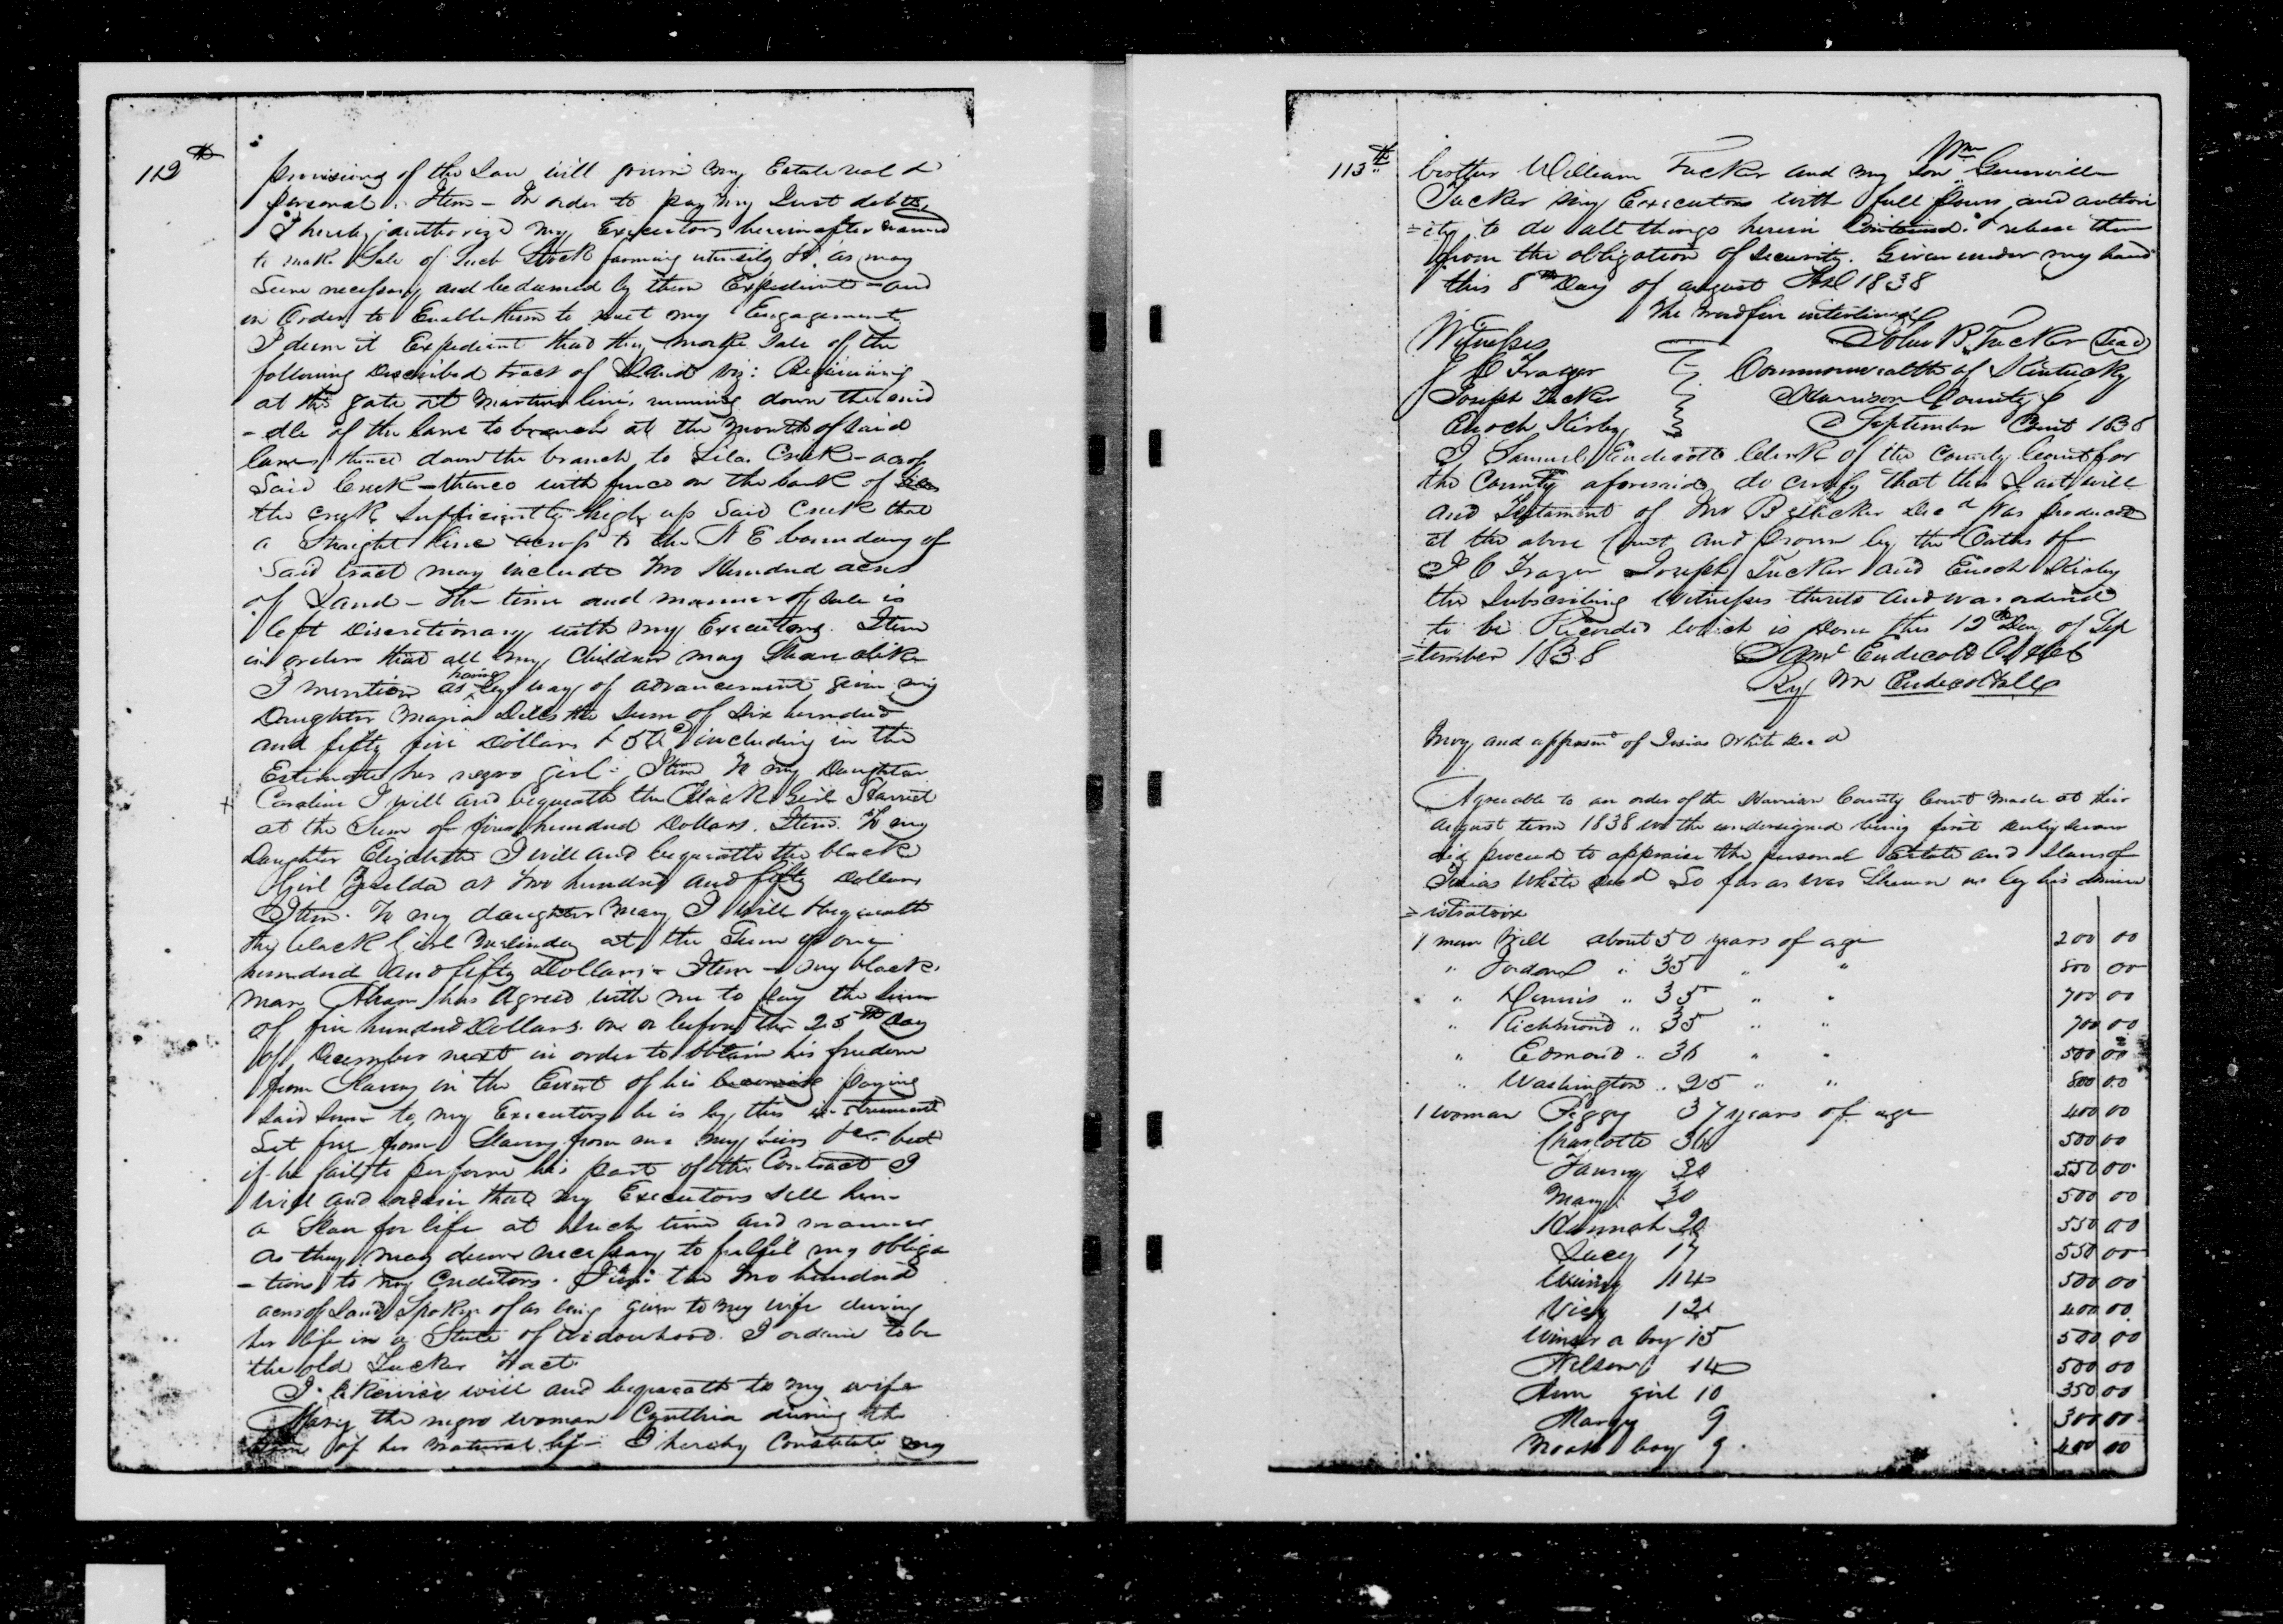 112th
provisions of the Law will given my Estate real &
personal. Item - In order to pay my Just debts,
I hereby authorize my Executors hereinafter named
to make Sale of Such Stock farming utensils &c. as may
Seem necessary and be deemed by them Expedient - and
in Order to Enable them to meet my Engagements
I deem it Expedient that they make Sale of the
following Described tract of Land viz: Beginning
at the gate at Martins line, running down the mid
-dle of the lane to branch at the mouth of said
lane, thence down the branch to Silas Creek - across
Said Creek - thence with fence on the bank of
the creek Sufficiently high up Said Creek that
a Straight line across to the N E boundary of
Said tract may include Two Hundred acres
of Land - the time and manner of Sale is
left Discretionary with my Executors. Item
in order that all my Children may Share alike
I mention as having by way of advancement given my
Daughter Maria Dills the Sum of Six hundred
and fifty five Dollars & 50c including in the
Estimate her negro girl. Item To my Daughter
Caroline I will and bequeath the Black Girl Harriet
at the Sum of four hundred Dollars. Item. To my
Daughter Elizabeth I will and bequeath the black
Girl Zerelda at Two hundred and fifty Dollars
Item. To my daughter Mary I will & bequeath
the black Girl Malinda at the Sum of one
hundred and fifty Dollars - Item - my black
man Abram has Agreed with me to pay the Sum
of five hundred Dollars on or before the 25th Day
of December next in order to obtain his freedom
from Slavery in the Event of his paying
Said Sum to my Executors he is by this instrument
Set free from Slavery from me my heirs &c. but
if he fails to perform his part of the Contract I
will and ordain that my Executors Sell him
a Slave for life at Such time and manner
as they may deem necessary to fulfil my obliga
-tions to my Creditors. Item: the Two hundred
acres of Land Spoken of as being given to my wife during
her life in a State of widowhood I ordain to be
the old Tucker tract.
I likewise will and bequeath to my wife
Mary the negro woman Cynthia during the
time of her natural life - I hereby Constitute my
113th
brother William Tucker and my Son Wm Greenville
Tucker my Executors with full power and author
=ity to do all things herein Contained. I release them
from the obligation of Security. Given under my hand
this 8th Day of August 1838
The word five interlined
Witnesses John B. Tucker Seal
J C Frazer Commonwealth of Kentucky
Joseph Tucker Harrison County
Enoch Kirby September Court 1838
I Samuel Endicott Clerk of the County Court for
the County aforesaid do certify that this Last will
and Testament of Jno B Tucker Decd Was produced
at the above Court and Proven by the Oaths of
J C Frazer Joseph Tucker and Enoch Kirby
the Subscribing Witnesses thereto and was ordered
to be Recorded which is Done this 12th Day of Sep
=tember 1838 Saml Endicott Clk
By Wm Endicott
Invy and appraismt of Isaias White Decd
Agreeable to an order of the Harrison County Court Made at their
August term 1838 we the undersigned being first duly Sworn
did proceed to appraise the personal Estate and Slaves of
Isaias White Decd So far as was Shewn us by his admin
=istratrix
1 man Will about 50 years of age 200 00
" Jordan " 35 " " 800 00
" Dennis " 35 " " 700 00
" Richmond " 35 " " 700 00
" Edmond " 36 " " 500 00
" Washington " 25 " " 800 00
1 woman Peggy 37 years of age 400 00
Charlotte 36 500 00
Fanny 30 550 00
Mary 30 500 00
Hannah 20 550 00
Lucy 17 550 00
Winny 14 500 00
Vicy 12 400 00
Winser a boy 15 500 00
Nelson 14 500 00
Ann girl 10 350 00
Margy 9 300 00
Noah boy 9 400 00